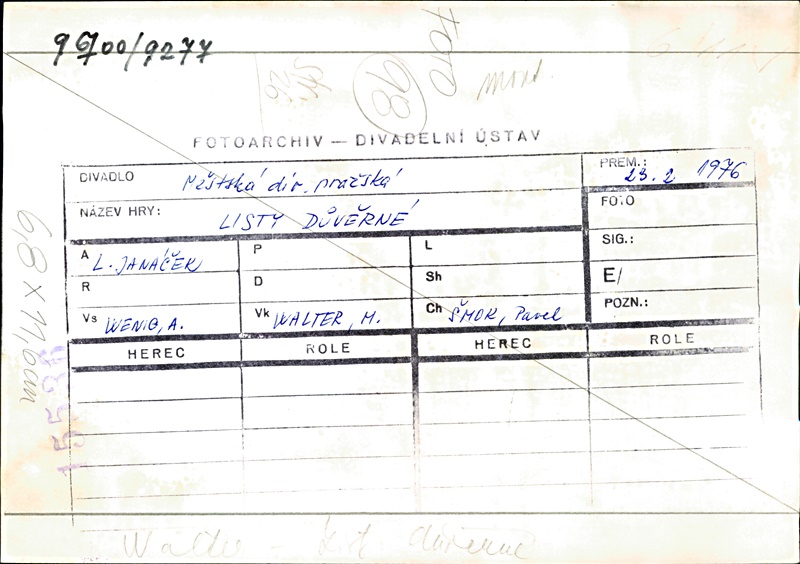 9600/9277
FOTO
98
FOTOARCHIV — DIVADELNÍ ÚSTAV
DIVADLO Městská div. pražská
PREM.: 23. 2 1976
NÁZEV HRY: LISTY DŮVĚRNÉ
FOTO
A L. JANÁČEK P L
SIG.:
R D Sh
E/
Vs WENIG, A. Vk WALTER, M. Ch ŠMOK, Pavel
POZN.:
HEREC ROLE HEREC ROLE
6,8 x 11,0cm
Walter - List. důvěrné